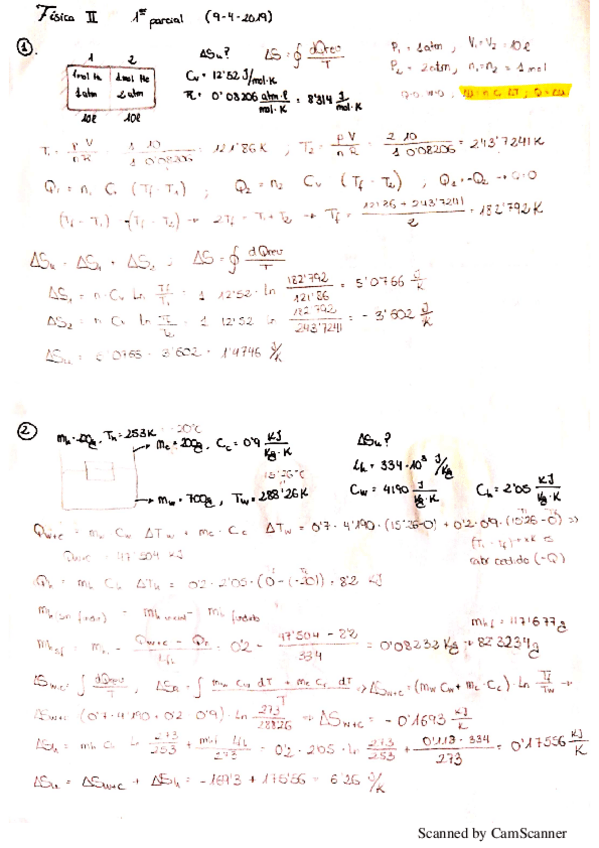 Física II 1er parcial (9-4-2019)
1
1 2
1mol He 1mol He
1atm 2atm
10l 10l
ΔSu? ΔS = ∮ dQrev/T
Cv = 12'52 J/mol·K
R = 0'08206 atm·l/mol·K = 8'314 J/mol·K
P1 = 1atm , V1 = V2 = 10l
P2 = 2atm, n1 = n2 = 1mol
T1 = pV/nR = 1 10/1 0'08206 = 121'86K , T2 = pV/nR = 2 10/1 0'08206 = 243'7241K
Q1 = n1 Cv (Tf - T1) ; Q2 = n2 Cv (Tf - T2) , Q1 = -Q2
2Tf = T1 + T2 → Tf = 121'86 + 243'7241/2 = 182'792 K
ΔSu = ΔS1 + ΔS2 ; ΔS = ∮ dQrev/T
ΔS1 = n Cv ln Tf/T1 = 1 12'52 · ln 182'792/121'86 = 5'0766 J/K
ΔS2 = n Cv ln Tf/T2 = 1 12'52 ln 182'792/243'7241 = - 3'602 J/K
ΔSu = 1'4746 J/K
2
Th = 253K -20°C
mc = 200g, Cc = 0'9 KJ/Kg·K
15'26°C
mw = 700g, Tw = 288'26K
ΔSu?
Lh = 334·10³ J/Kg
Cw = 4190 J/Kg·K Ch = 2'05 KJ/Kg·K
Qw+c = mw Cw ΔTw + mc·Cc ΔTw = 0'7 · 4'190 · (15'26-0) + 0'2·0'9·(15'26-0) ⇒
calor cedido (-Q)
Qw+c = 47'504 KJ
Qh = mh Ch ΔTh = 0'2 · 2'05 · (0-(-20)) = 8'2 KJ
= 0'2 - 47'504 - 8'2/334 = 0'08232 Kg = 82'3234g
ΔSw+c = ∫ dQrev/T , = ∫ mw Cw dT + mc Cc dT/T ⇒ ΔSw+c = (mw Cw + mc·Cc) · ln Tf/Tw →
ΔSw+c (0'7·4'190 + 0'2 0'9) · ln 273/288'26 ⇒ ΔSw+c = - 0'1693 KJ/K
ΔSh = mh Ch ln 273/253 + = 0'2 · 2'05 · ln 273/253 + 0'118 · 334/273 = 0'17556 KJ/K
ΔSu = ΔSw+c + ΔSh = -169'3 + 175'56 = 6'26 J/K
Scanned by CamScanner